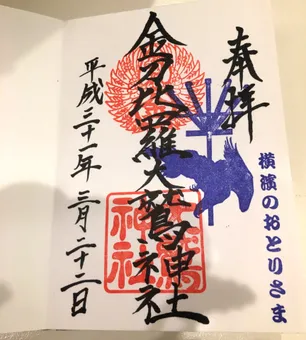 奉拝
横濱のおとりさま
金刀比羅大鷲神社
平成三十一年三月二十二日